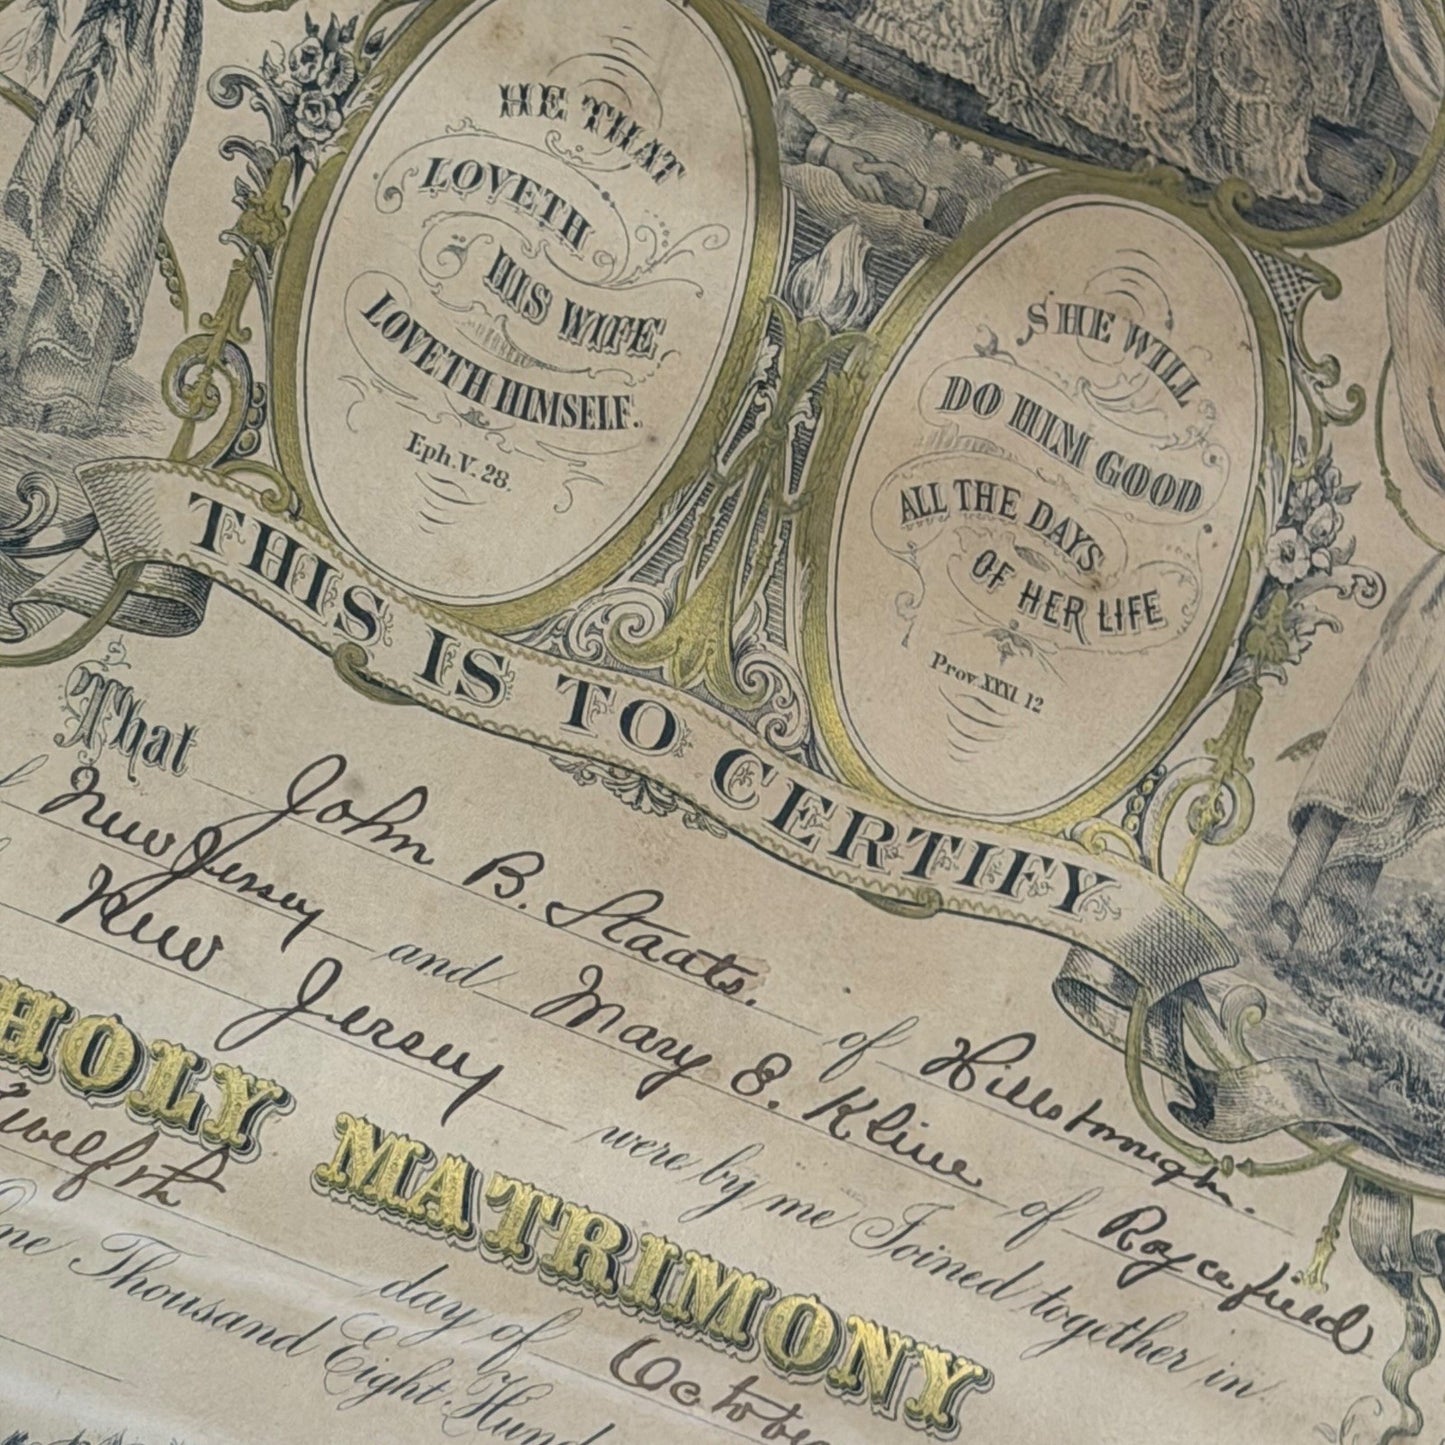 HE THAT
LOVETH
HIS WIFE
LOVETH HIMSELF.
Eph. V. 28.
SHE WILL
DO HIM GOOD
ALL THE DAYS
OF HER LIFE
Prov. XXXI 12
THIS IS TO CERTIFY
That John B. Staats. of Hillsborough.
New Jersey and Mary E. Kline of Roycefield
New Jersey were by me Joined together in
HOLY MATRIMONY
Twelfth day of October
One Thousand Eight Hund